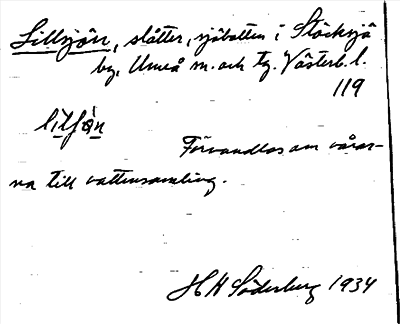 Lillsjön, slåtter, sjöbotten i Stöcksjö
by, Umeå sn. och tg. Västerb. l.
119
Förvandlas om våren
na till vattensamling.
H H Söderberg 1934